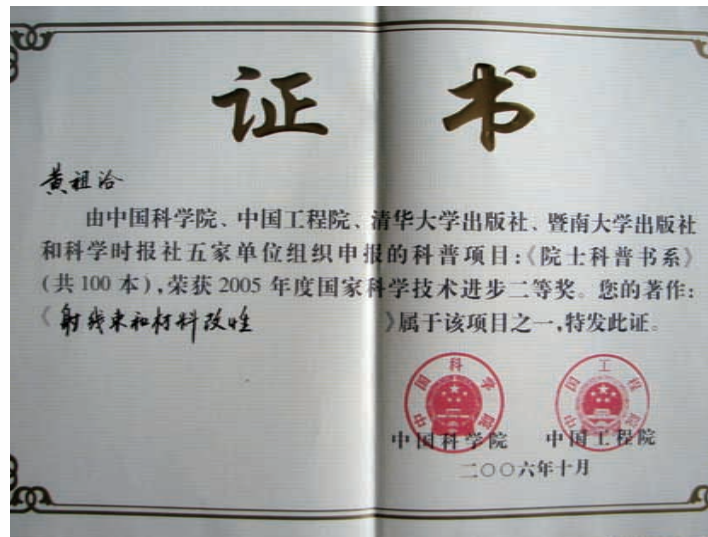 证 书
黄祖洽
由中国科学院、中国工程院、清华大学出版社、暨南大学出版社
和科学时报社五家单位组织申报的科普项目:《院士科普书系》
(共100本),荣获2005年度国家科学技术进步二等奖。您的著作:
《射线束和材料改性》属于该项目之一,特发此证。
中国科学院 中国工程院
中国科学院 中国工程院
二○○六年十月